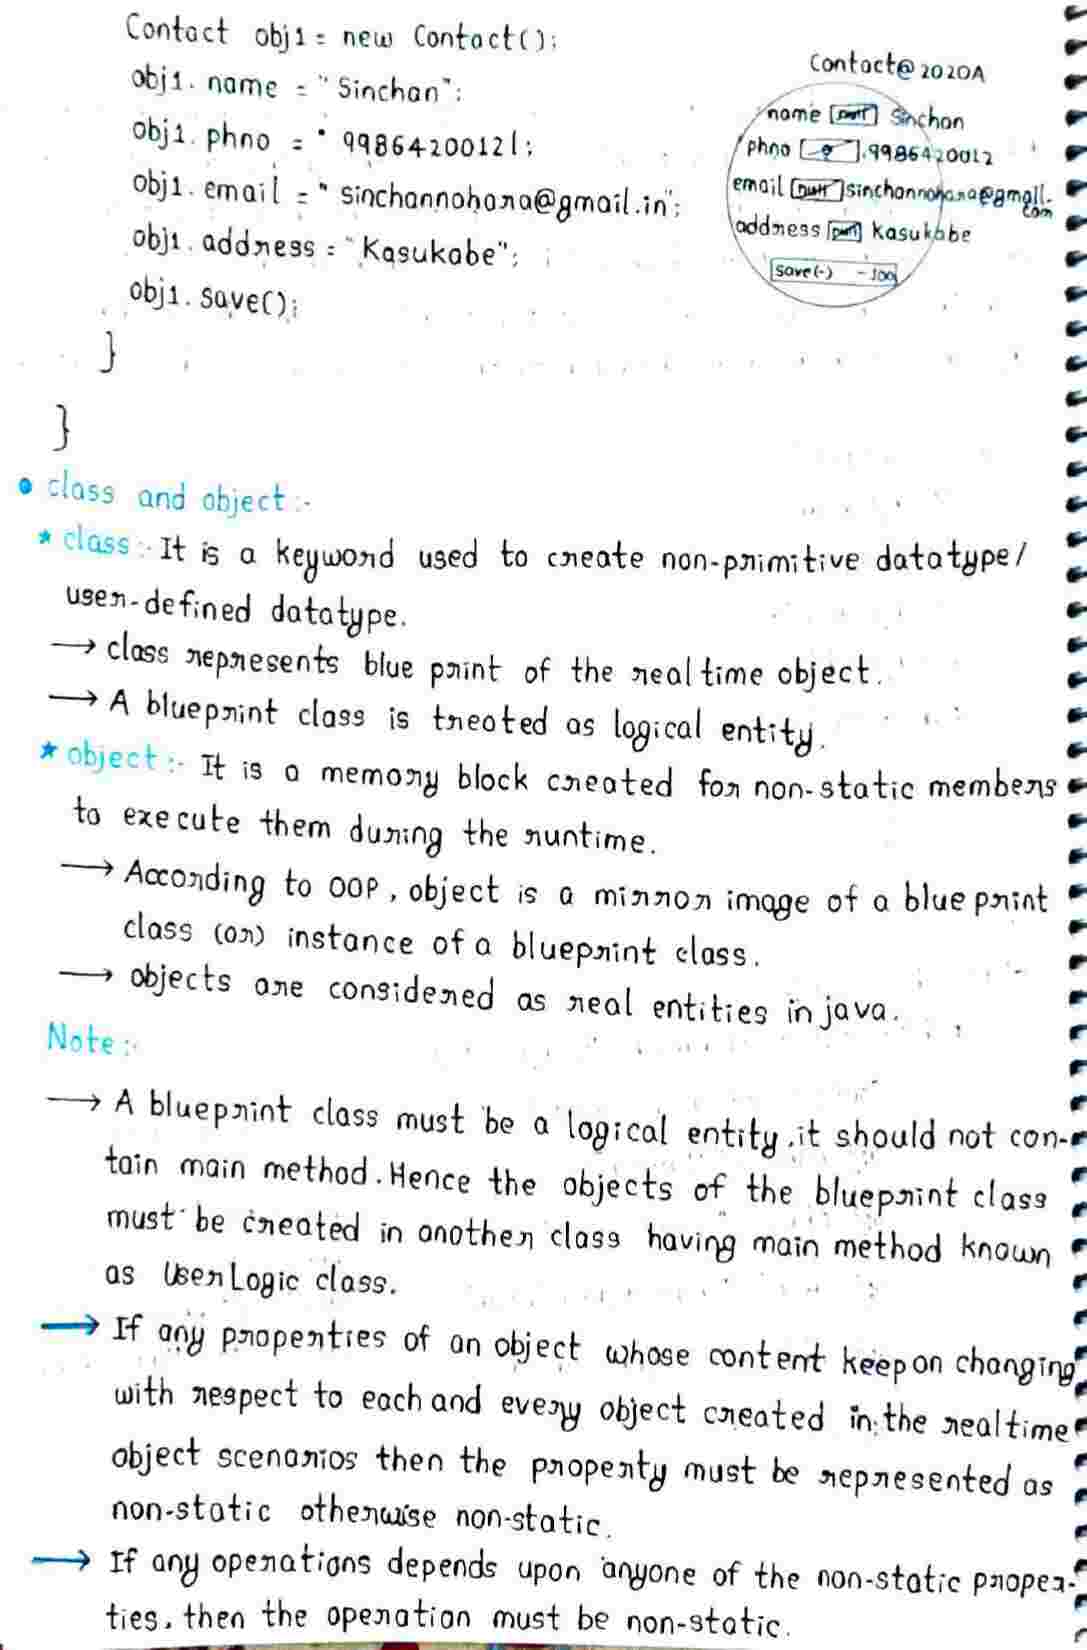 Contact obj1 = new Contact();
obj1. name = "Sinchan";
obj1. phno = " 9986420012l;
obj1. email = "sinchannohara@gmail.in";
obj1. address = "Kasukabe";
obj1. save();
}
}
Contact@2020A
name Sinchan
phno 9986420012
email null sinchannohara@gmail.
com
address null Kasukabe
save(-) -100
• class and object :-
* class :- It is a keyword used to create non-primitive datatype/
user-defined datatype.
→ class represents blue print of the real time object.
→ A blueprint class is treated as logical entity.
* object :- It is a memory block created for non-static members
to execute them during the runtime.
→ According to OOP, object is a mirror image of a blue print
class (or) instance of a blueprint class.
→ objects are considered as real entities in java.
Note :-
→ A blueprint class must be a logical entity, it should not con-
tain main method. Hence the objects of the blueprint class
must be created in another class having main method known
as UserLogic class.
→ If any properties of an object whose content keep on changing
with respect to each and every object created in the realtime
object scenarios then the property must be represented as
non-static otherwise non-static.
→ If any operations depends upon anyone of the non-static proper-
ties, then the operation must be non-static.